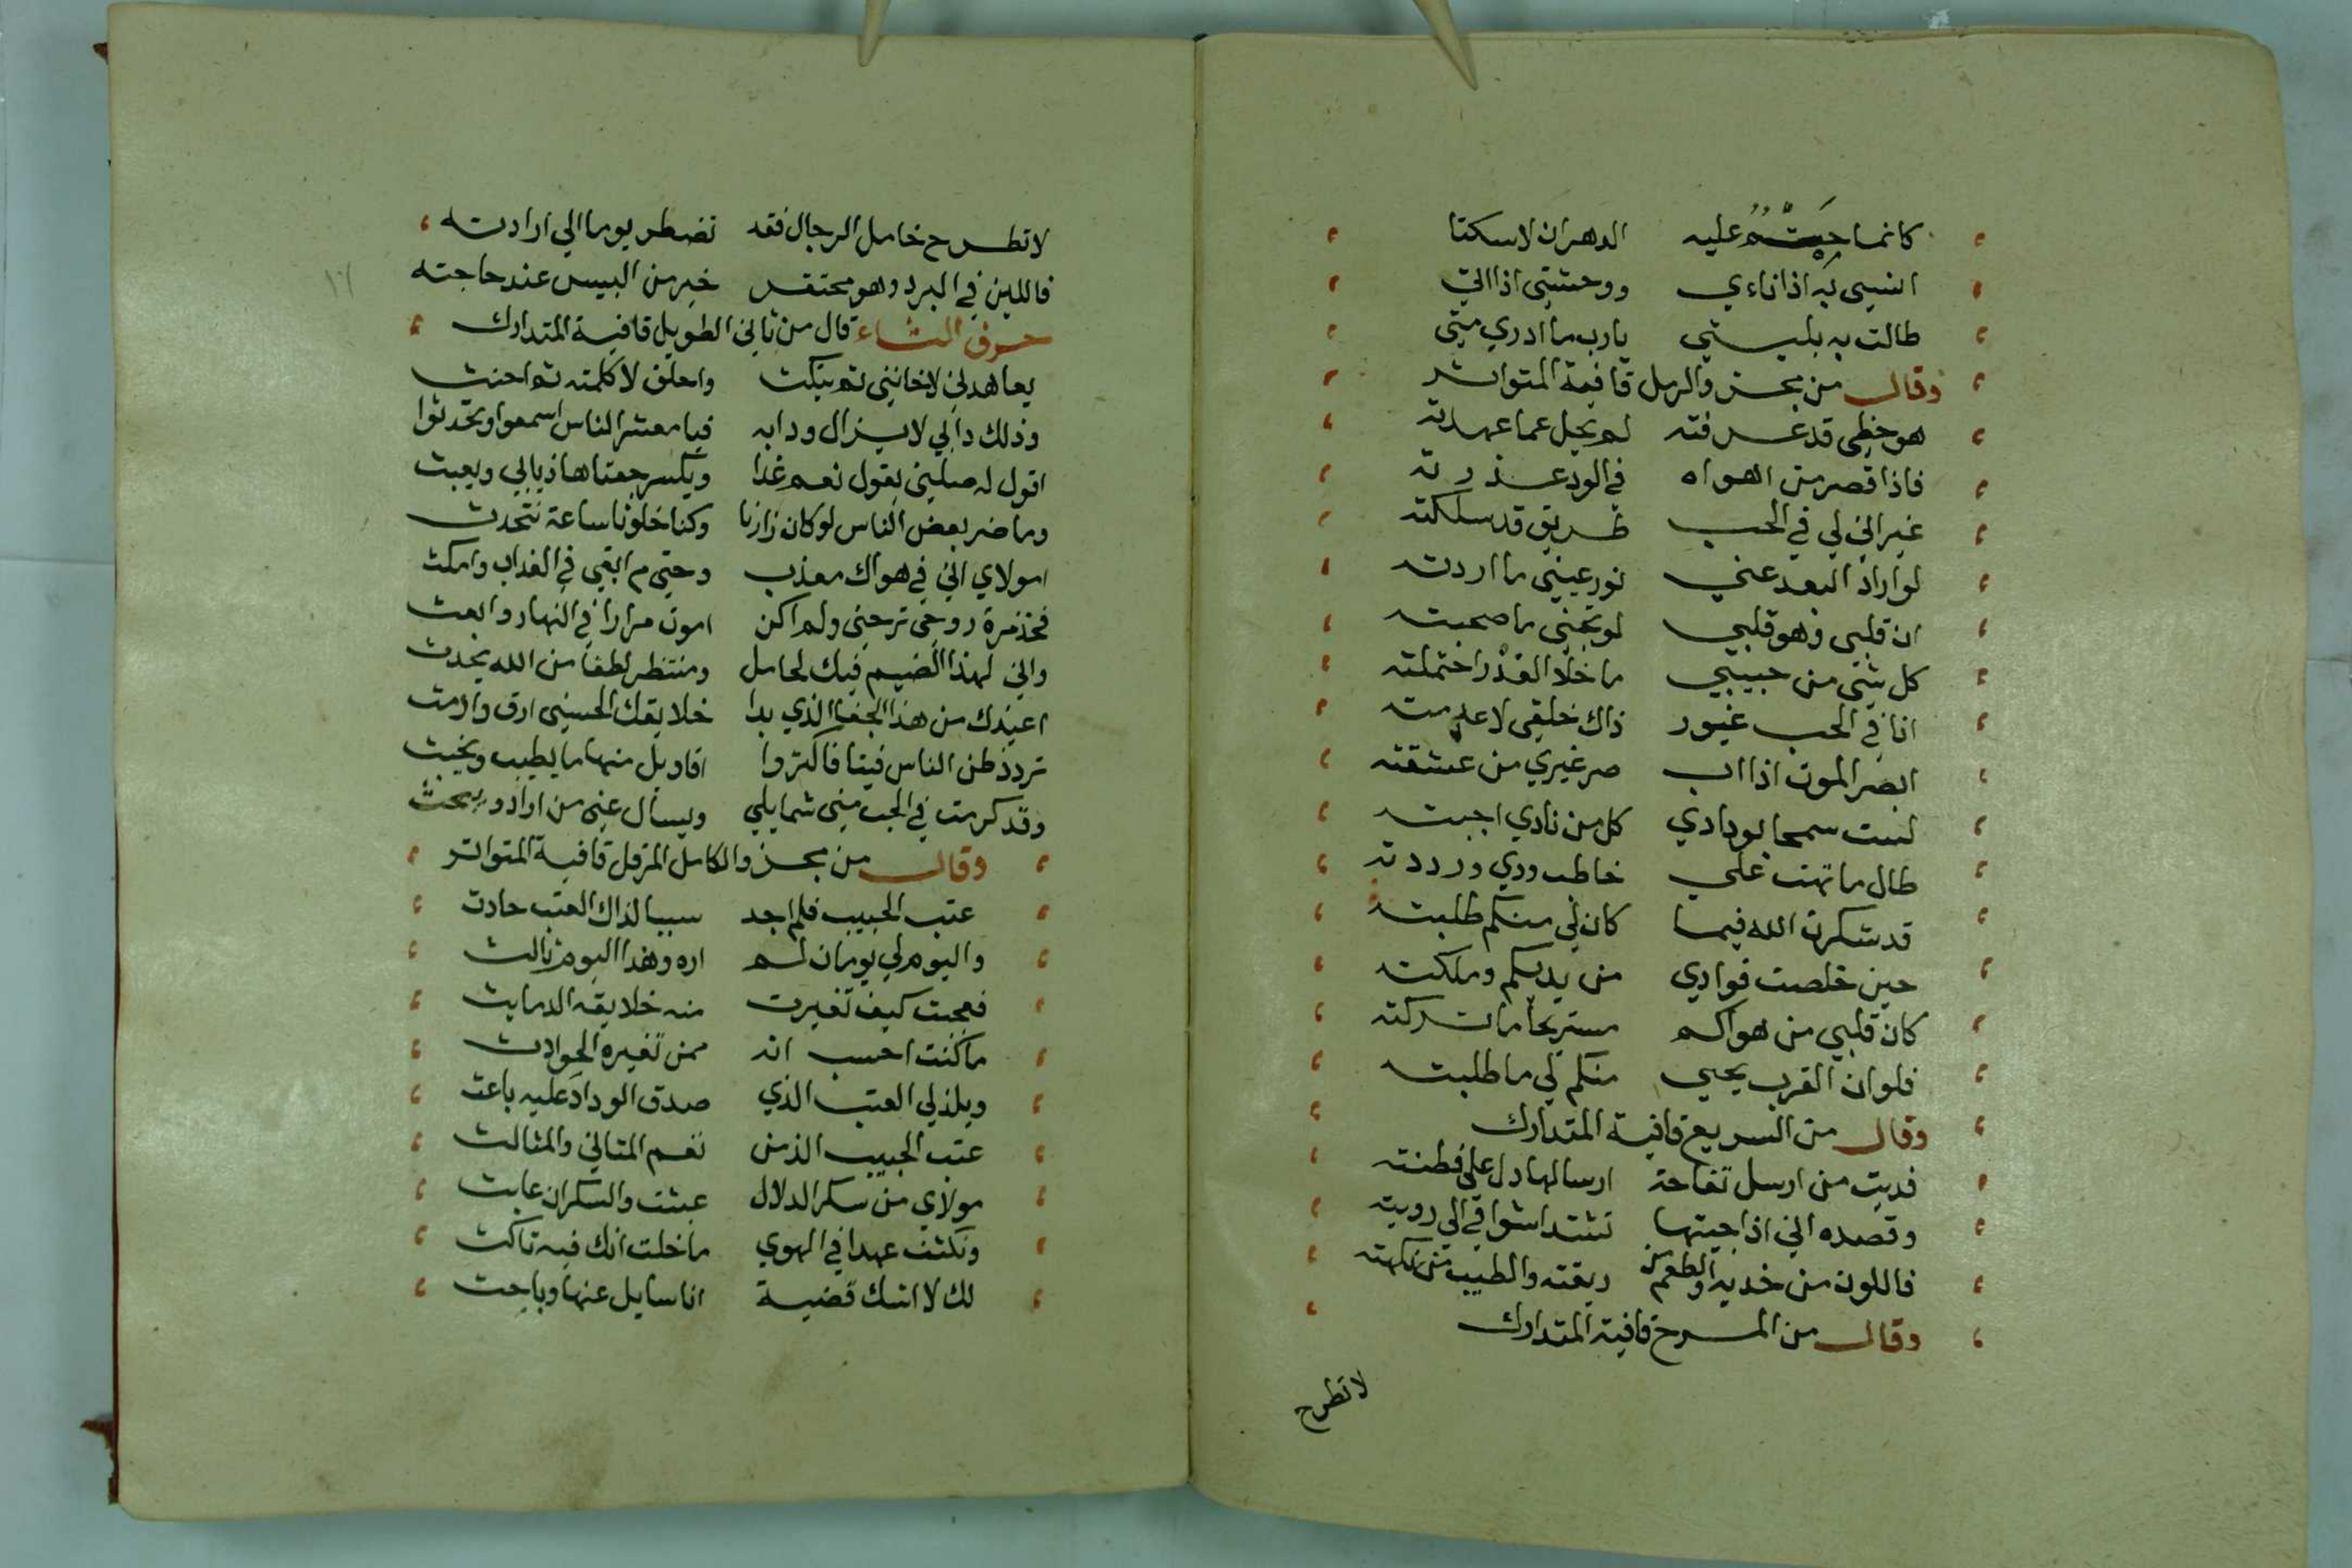 كانما حتم عليه الدهران لا سكتا
انسى به اذا ناءي ووحشتى اذا اتى
طالت به بليتي يارب ما ادري متى
وقال من مجزو الرمل قافية المتواتر
هو حظى قد عرفته لم يحل عما عهدته
فاذا قصر من اهواه في الود عذرته
غير اني لي في الحب طريق قد سلكته
لو اراد البعد عني نور عينى ما اردته
ان قلبى وهو قلبي لو تجنى ما صحبته
كل شى من حبيبي ما خلا الغدر احتملته
انا في الحب غيور ذاك خلقى لا عدمته
ابصر الموت اذا اب صر غيري من عشقته
لست سمحا بودادي كل من نادي اجبته
طال ما تهت على خاطب ودي ورددته
قد شكرت الله فيما كان لي منكم طلبته
حين خلصت فوادي من يديكم وملكته
كان قلبي من هواكم مستريحا ما تركته
فلو ان القرب يحيي منكم لي ما طلبته
وقال من السريع قافية المتدارك
فديت من ارسل تفاحة ارسالها دل على فطنته
وقصده اني اذا جيتها تشتد اشواقي الي رويته
فاللون من خديه والطعم من ريقته والطيب من نكهته
وقال من المسرح قافية المتدارك
لا تطرح
لا تطرح خامل الرجال فقد تضطر يوما الي ارادته
فاللين في البرد وهو محتقر خير من البيس عند حاجته
حرف الثاء قال من ثاني الطويل قافية المتدارك
يعاهدني لا خانني ثم ينكث واحلف لا كلمته ثم احنث
وذلك دابي لا يزال ودابه فيا معشر الناس اسمعوا وتحدثوا
اقول له صلني يقول نعم غدا ويكسر جفنا هازيا بي ويعبث
وما ضر بعض الناس لو كان زارنا وكنا خلونا ساعة نتحدث
امولاي اني في هواك معذب وحتي م ابقي في العذاب وامكث
فخذ مرة روحى ترحنى ولم اكن اموت مرارا في النهار وابعث
واني لهذا الضيم فيك لحامل ومنتظر لطفا من الله يحدث
اعيذك من هذا الجفا الذي بدا خلايقك الحسنى ارق وادمث
تردد ظن الناس فينا فاكثروا اقاويل منها ما يطيب ويخبث
وقد كرمت في الحب منى شمايلي ويسال عنى من اراد ويبحث
وقال من مجزو الكامل المرفل قافية المتواتر
عتب الحبيب فلم اجد سببا لذاك العتب حادث
واليوم لي يومان لم اره وهذا اليوم ثالث
فعجبت كيف تغيرت منه خلايقه الدمايث
ما كنت احسب انه ممن تغيره الحوادث
ويلذ لي العتب الذي صدق الوداد عليه باعث
عتب الحبيب الذ من نغم المثاني والمثالث
مولاي من سكر الدلال عبثت والسكران عابث
ونكثت عهدا في الهوي ما خلت انك فيه ناكث
لك لا اشك قضية انا سايل عنها وباحث